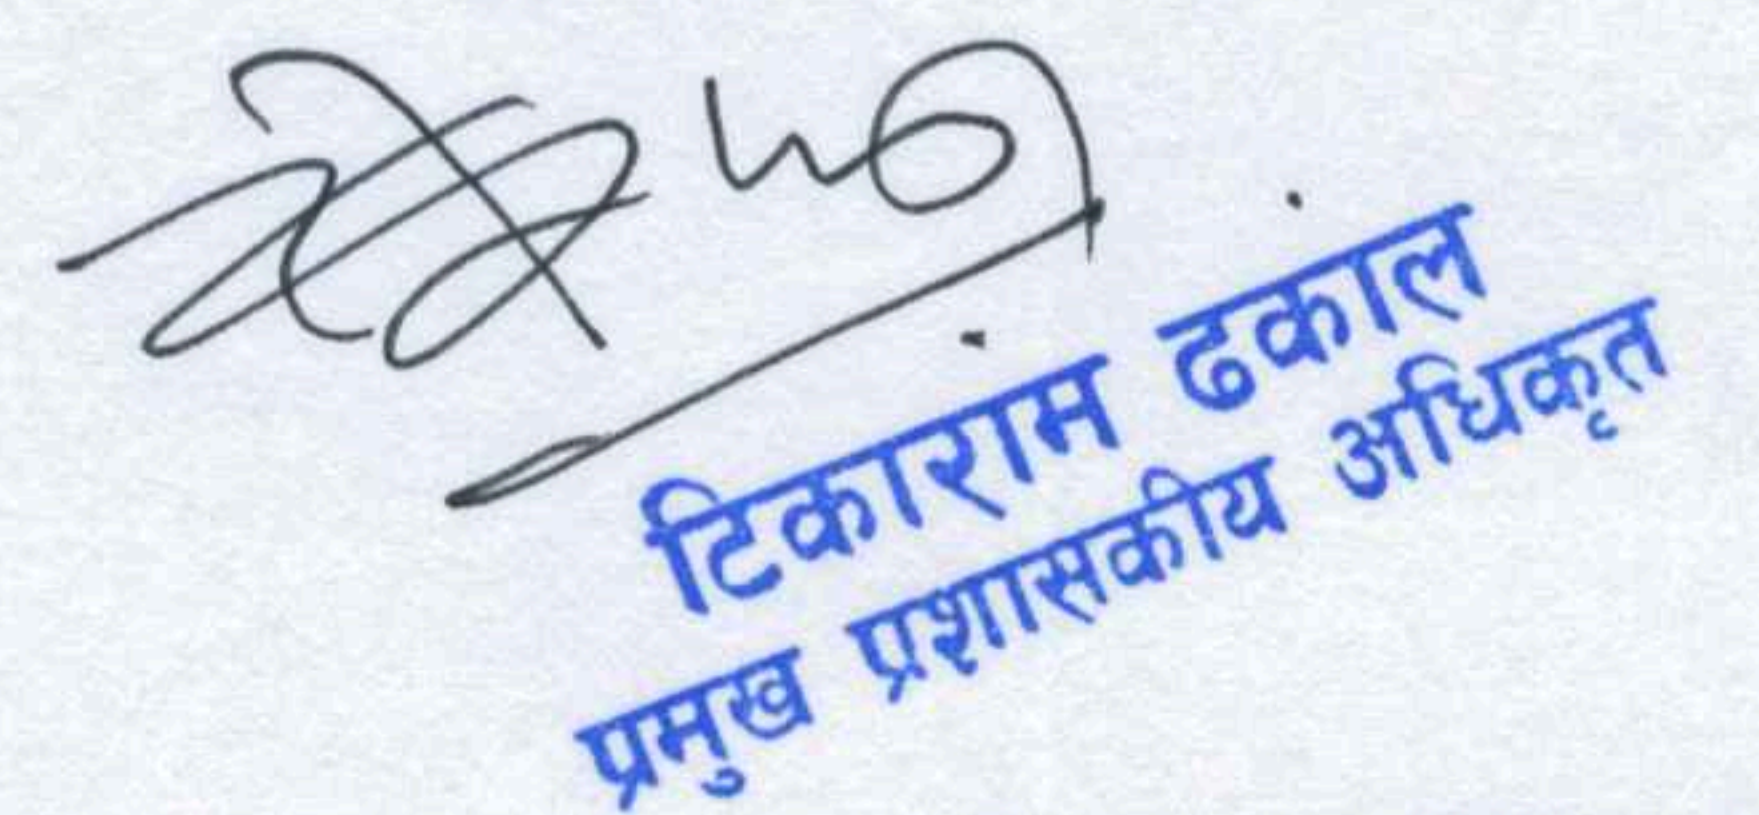 टिकाराम ढकाल
प्रमुख प्रशासकीय अधिकृत